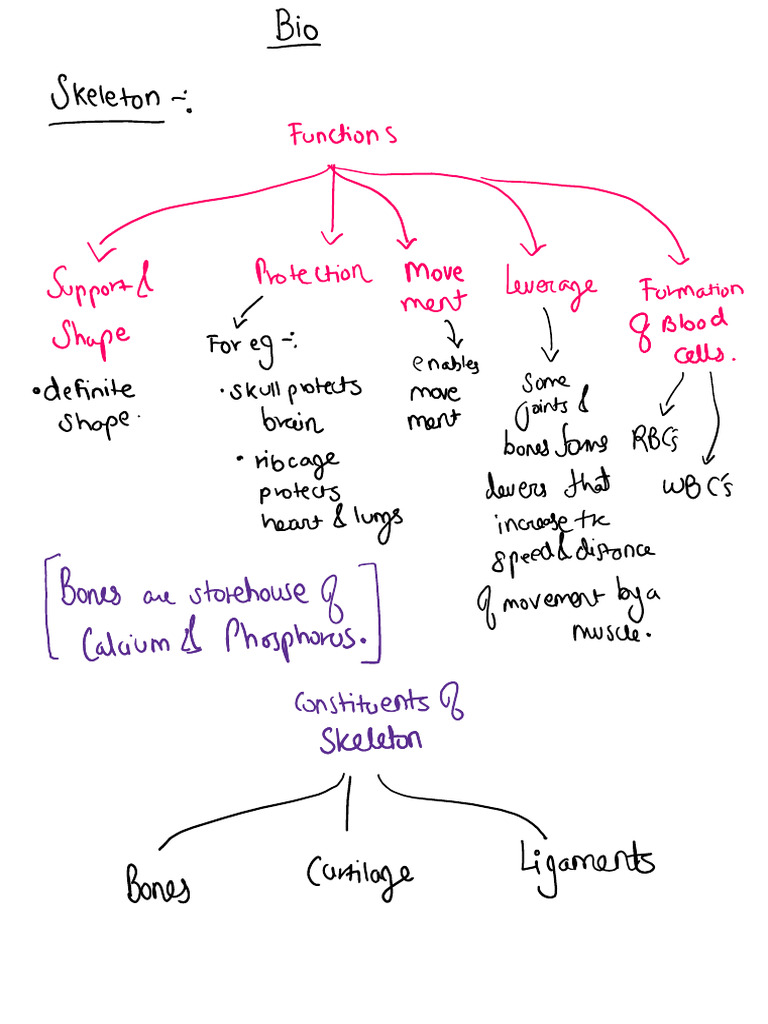 Bio
Skeleton -:
Functions
Support &
Shape
• definite
shape.
Protection
For eg -:
• skull protects
brain
• ribcage
protects
heart & lungs
Move
ment
enables
move
ment
Leverage
Some
joints &
bones forms
levers that
increase the
speed & distance
of movement by a
muscle.
Formation
of Blood
cells.
RBC's
WBC's
[Bones are storehouse of
Calcium & Phosphorus.]
Constituents of
Skeleton
Bones
Cartilage
Ligaments